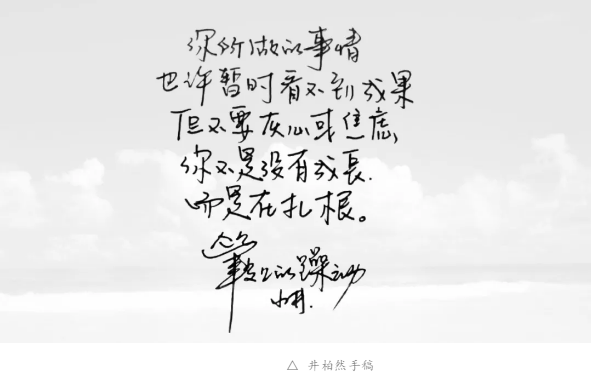 你所做的事情
也许暂时看不到成果
但不要灰心或焦虑,
你不是没有成長.
而是在扎根。
的躁动
小井.
△ 井柏然手稿